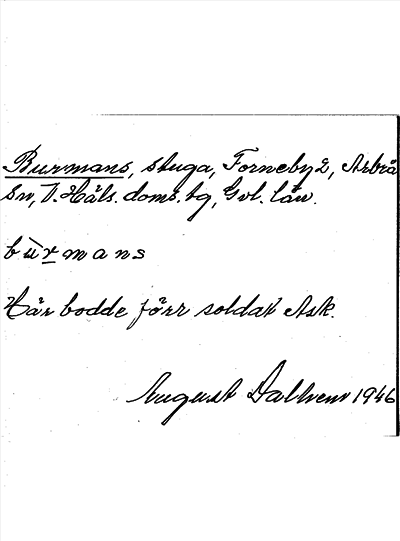 Burmans, stuga, Forneby 2, Arbrå
sn, V. Häls. doms. tg, Gvl. län.
bùrmans
Här bodde förr soldat Ask.
August Dallven 1946